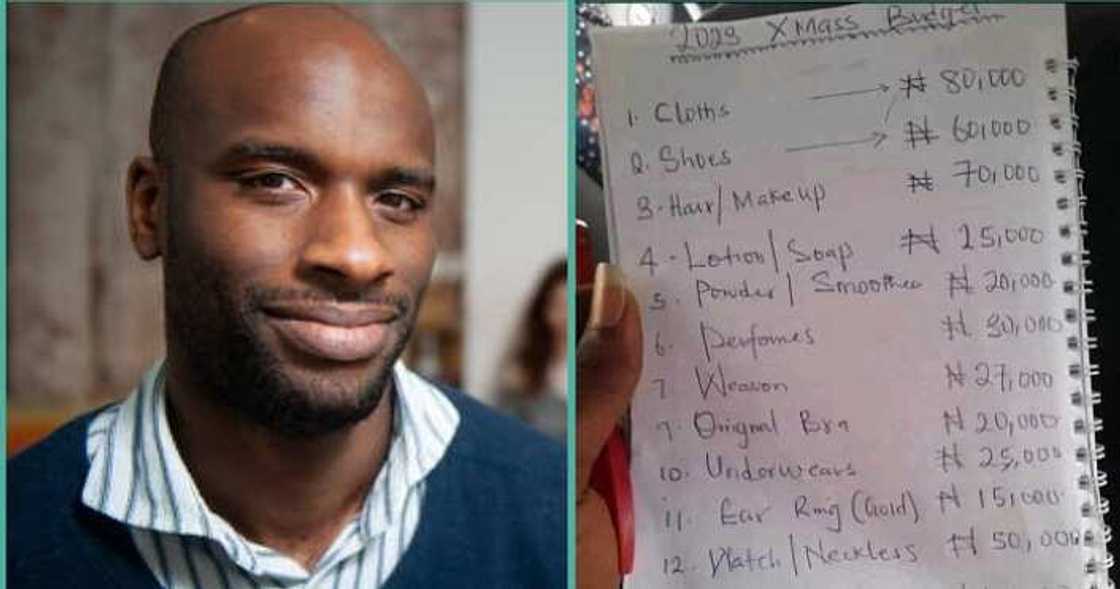 2023 XMass Budget
1. Cloths → ₦ 80,000
2. Shoes → ₦ 60,000
3. Hair/Makeup ₦ 70,000
4. Lotion/Soap ₦ 25,000
5. Powder/Smoothee ₦ 20,000
6. Perfomes ₦ 30,000
7 Weavon ₦ 27,000
9. Original Bra ₦ 20,000
10. Underwears ₦ 25,000
11. Ear Ring (Gold) ₦ 15,000
12. Watch/Neckless ₦ 50,000